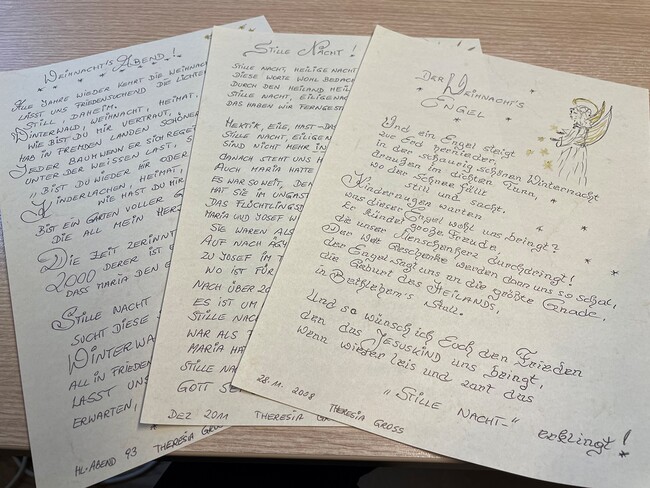 WEIHNACHT'S ABEND!
ALLE JAHRE WIEDER KEHRT DIE WEIHNACHT
LÄSST UNS FRIEDENSUCHEND DIE LICHTER
STILL, DAHEIM.
WINTERWALD, WEIHNACHT, HEIMAT,
WIE BIST DU MIR VERTRAUT,
HAB IN FREMDEN LANDEN SCHÖNER
JEDER BAUM WENN ER SICH REGET
UNTER DER WEISSEN LAST, S
"BIST DU WIEDER HIR ODER
KINDERLACHEN, HEIMAT,
WIE HAST DU MIR
BIST EIN GARTEN VOLLER G
DIE ALL MEIN HERZ
DIE ZEIT ZERINNT
2000 DERER IST
DASS MARIA DEN E
STILLE NACHT
SUCHT DIESE
WINTERWA
ALL IN FRIEDEN
LASST UNS
ERWARTEN,
HL. ABEND 93 THERESIA GRO
STILLE NACHT!
STILLE NACHT, HEILIGE NACHT
DIESE WORTE WOHL BEDACH
DURCH DEN HEILAND HEIL
STILLE NACHT, EILIGE NAC
DAS HABEN WIR FERNGEST
HEKTIK, EILE, HAST - DAS
STILLE NACHT, EILIGEN
SIND NICHT MEHR IN
DANACH STEHT UNS H
AUCH MARIA HATTE
ES WAR SO WEIT, DEN
HAT SIE IM UNGAST
DAS FLÜCHTLINGST
MARIA UND JOSEF W
SIE WAREN ALS
AUF NACH ÄGY
ZU JOSEF IM T
WO IST FÜR
NACH ÜBER 20
ES IST UM
STILLE NAC
WAR ALS T
MARIA HAT
STILLE NA
GOTT SE
DEZ 2011 THERESIA G
DER WEIHNACHT'S
ENGEL
Und ein Engel steigt
zur Erd hernieder,
in der schaurig schönen Winternacht
draußen im dichten Tann,
wo der Schnee fällt
still und sacht.
Kinderaugen warten
was dieser Engel wohl uns bringt?
Er kündet große Freude,
die unser Menschenherz durchdringt!
Der Welt Geschenke werden dann uns so schal,
der Engel sagt uns an die größte Gnade,
die Geburt des HEILANDS,
in Bethlehem's Stall.
Und so wünsch ich Euch den Frieden
den das JESUSKIND uns bringt,
wenn wieder leis und zart das
"STILLE NACHT-" erklingt!
28.11.2008 THERESIA GROSS